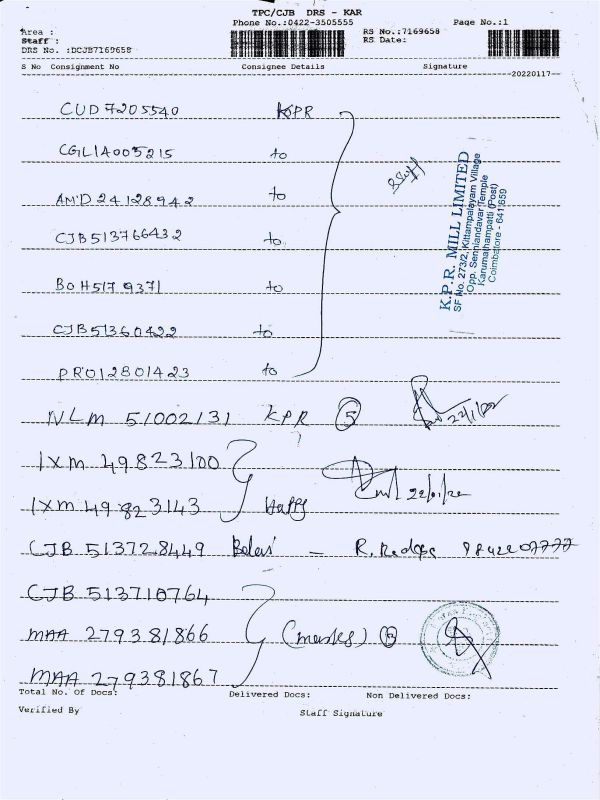 TPC/CJB DRS - KAR
Phone No.:0422-3505555
Page No.:1
Area :
Staff :
DRS No. :DCJB7169658
RS No.:7169658
RS Date:
S No Consignment No Consignee Details Signature
20220117
CUD7205540 KPR
CGLIA005215 to
AMD24128942 to
CJB513766432 to
BOH5179371 to
CJB51360422 to
PRO12801423 to
K.P.R. MILL LIMITED
SF No. 273/2, Kittampalayam Village
Opp. Senniandavar Temple
Karumathampatti (Post)
Coimbatore - 641 659
NLM 51002131 KPR 5 22/1/22
IXM 49823100 22/01/22
IXM 49823143 Happy
CJB 513728449 -
CJB 513710764
MAA 279381866
MAA 279381867
Total No. Of Docs: Delivered Docs: Non Delivered Docs:
Verified By Staff Signature